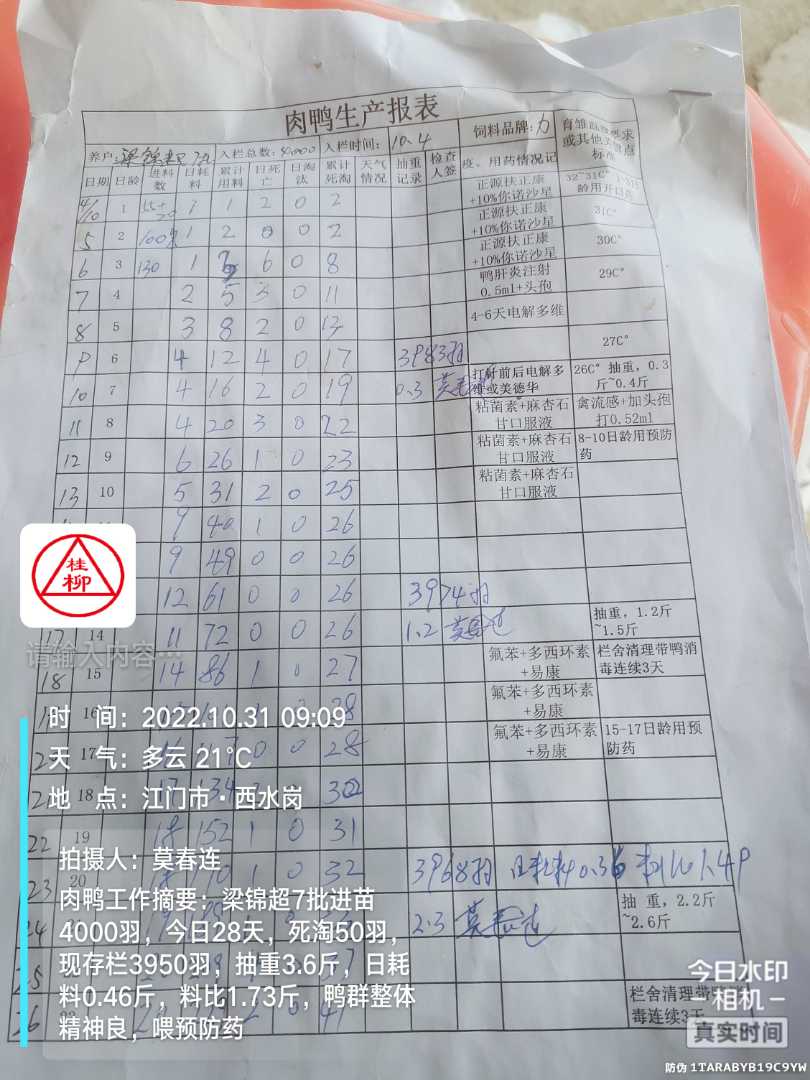 肉鸭生产报表
养户: 梁锦超 7批 入栏总数: 4000 入栏时间: 10.4 饲料品牌: 力
日期 日龄 进料数 日耗料 累计用料 日死亡 日淘汰 累计死淘 天气情况 抽重记录 检查人签 疫、用药情况记 育雏
或其他 点
标准
4/10 1 1 1 2 0 2 正源扶正康+10%你诺沙星 32~31C°
5 2 1 2 0 0 2 正源扶正康+10%你诺沙星 31C°
6 3 130 1 3 6 0 8 正源扶正康+10%你诺沙星 30C°
7 4 2 5 3 0 11 鸭肝炎注射0.5ml+头孢 29C°
8 5 3 8 2 0 13 4-6天电解多维
9 6 4 12 4 0 17 3983羽 27C°
10 7 4 16 2 0 19 0.3 莫春连 打针前后电解多维或美德华 26C° 抽重，0.3斤~0.4斤
11 8 4 20 3 0 22 粘菌素+麻杏石甘口服液 禽流感+加头孢打0.52ml
12 9 6 26 1 0 23 粘菌素+麻杏石甘口服液 8-10日龄用预防药
13 10 5 31 2 0 25 粘菌素+麻杏石甘口服液
9 40 1 0 26
9 49 0 0 26
12 61 0 0 26 3974羽
17 14 11 72 0 0 26 1.2 莫春连 抽重，1.2斤~1.5斤
18 15 14 86 1 0 27 氟苯+多西环素+易康 栏舍清理带鸭消毒连续3天
16 28 氟苯+多西环素+易康
17 0 28 氟苯+多西环素+易康 15-17日龄用预防药
18 134 30
22 19 18 152 1 0 31
23 20 1 0 32 3968羽 日耗料0.36 料比1.49
24 2.3 莫春连 抽重，2.2斤~2.6斤
25
26 41 栏舍清理带
毒连续3天
桂柳
请输入内容…
时 间：2022.10.31 09:09
天 气：多云 21℃
地 点：江门市·西水岗
拍摄人：莫春连
肉鸭工作摘要：梁锦超7批进苗
4000羽，今日28天，死淘50羽，
现存栏3950羽，抽重3.6斤，日耗
料0.46斤，料比1.73斤，鸭群整体
精神良，喂预防药
今日水印
相机
真实时间
防伪 1TARABYB19C9YW